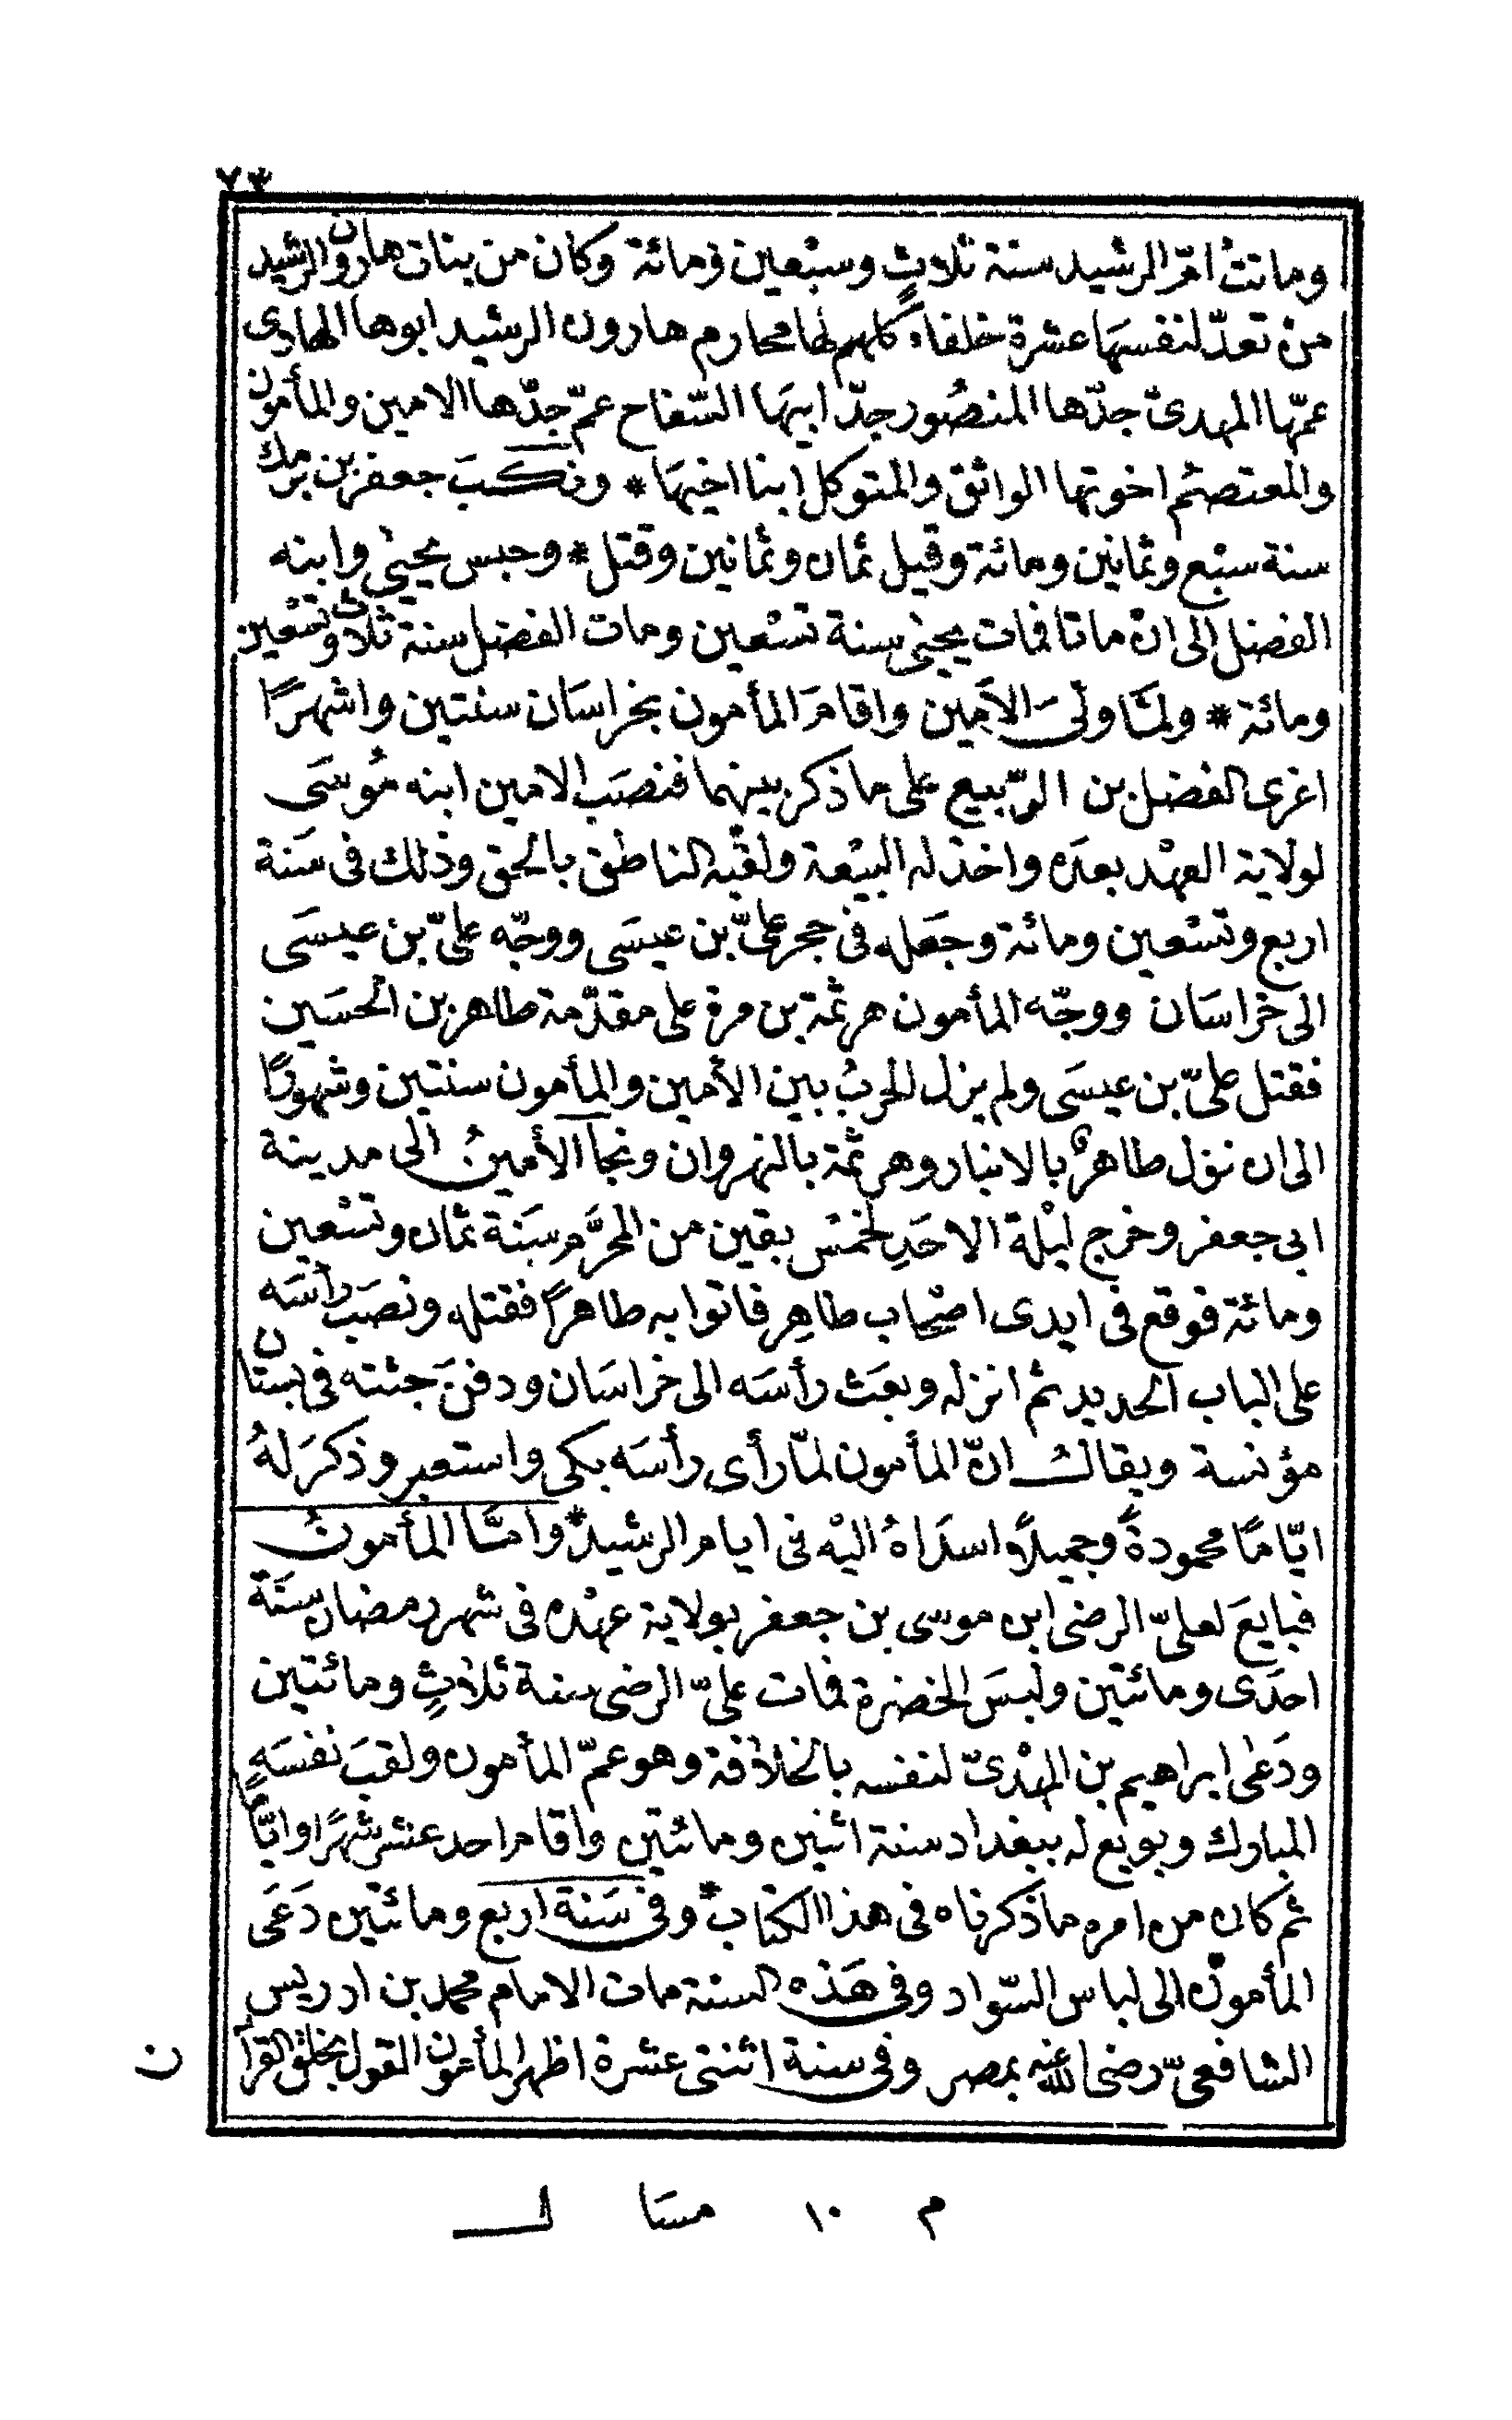 ٧٣
وماتتْ امّ الرشيد سنة ثلاثٍ وسبْعين ومائة وكان من بنات هارون الرشيد
منْ تعدّ لنفسهَا عشرة خلفاء كلهم لها محارم هارون الرشيد ابوها الهادى
عمّها المهدىّ جدّها المنصُور جدّ ابيهَا السّفاح عمّ جدّها الامين والمأمون
والمعتصمُ اخوتها الواثق والمتوكل ابنا اخيهَا * ونكبَ جعفر بن برمك
سنة سبْع وثمانين ومائة وقيل ثمان وثمانين وقتل * وحبس يحيىٰ وابنه
الفضل الى انْ ماتا فمات يحيىٰ سنة تسْعين ومات الفضل سنة ثلاث وتسْعين
ومائة * ولمّا ولىَ الأمين واقامَ المأمون بخراسَان سنتين واشهرًا
اغرى الفضل بن الرّبيع على ما ذكر بينهما فنصَب الامين ابنه مُوسَى
لولاية العهْد بعدَه واخذ له البيْعة ولقّبه الناطق بالحق وذلك فى سَنة
اربع وتسْعين ومائة وجَعله فى حجر علىّ بن عيسَى ووجّه علىّ بن عيسَى
الى خراسَان ووجّه المأمون هرثمة بن مرة على مقدّمة طاهر بن الحسَين
فقتل علىّ بن عيسَى ولم يزل الحربُ بين الأمين والمأمون سنتين وشهورًا
الى ان نزل طاهرٌ بالانبار وهرثمة بالنهروان ونجا الأمينُ الى مدينة
ابى جعفر وخرج ليْلة الاحَدِ لخمسْ بقين من المحرَّم سَنة ثمان وتسْعين
ومائة فوقع فى ايدى اصْحاب طاهِر فاتوا به طاهرًا فقتله ونصَب رأسَه
على الباب الحديد ثم انزله وبعَث رأسَه الى خراسَان ودفنَ جثته فى بستان
مؤنسة ويقالُ انّ المأمون لمّا رأى رأسَه بكى واستعبر وذكرَ لهُ
ايّامًا محمودةً وجميلًا اسدَاهُ اليْه فى ايام الرشيد * وامّا المأمونُ
فبايعَ لعلىّ الرضى ابن موسى بن جعفر بولاية عهْده فى شهر رمضان سنَة
احدَى ومائتين ولبسَ الخضرة فمات علىّ الرضى سنة ثلاثٍ ومائتين
ودَعٰى ابراهيم بن المهْدىّ لنفسه بالخلافة وهو عمّ المأمون ولقبَ نفسَه
المبارك وبويع له ببغداد سنة اثنين ومائتين واقام احد عشر شهرًا وايّامًا
ثم كان من امره ما ذكرناه فى هذا الكتاب * وفى سَنة اربع ومائتين دَعَى
المأمون الى لباس السّواد وفى هَذه السنة مات الامام محمد بن ادريس
الشافعىّ رضى الله عنه بمصر وفى سنة اثنتى عشرة اظهر المأمون القول بخلق القرآ
ن
م ١٠ مسَا لـ